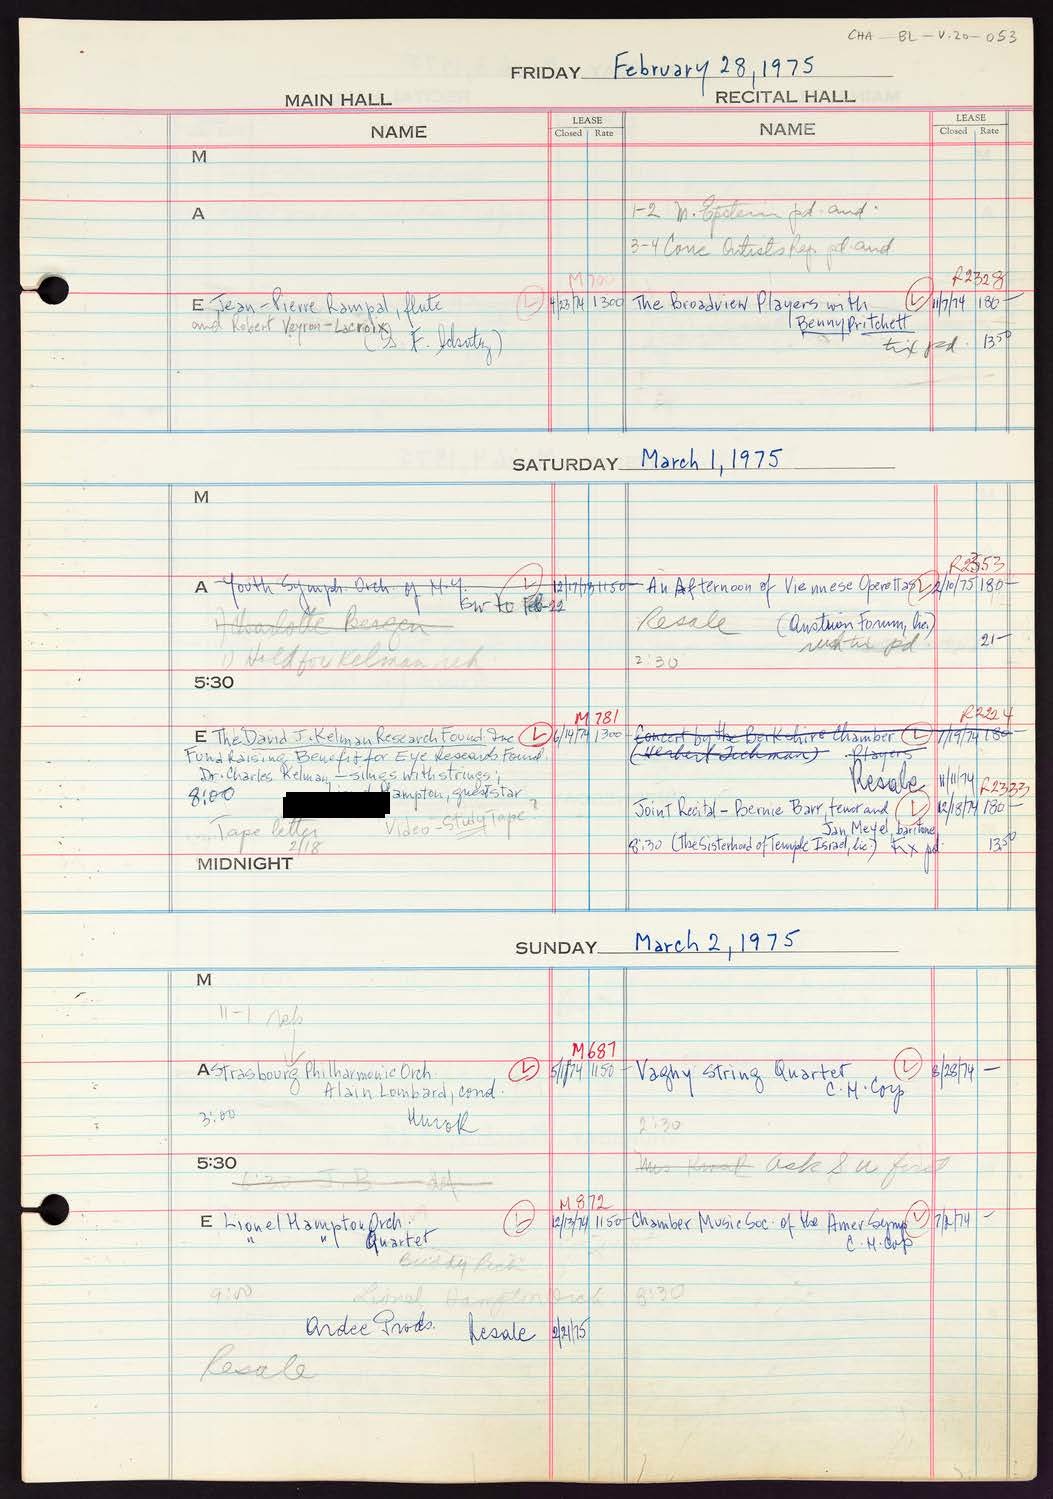 CHA - BL - V.20 - 053
FRIDAY February 28, 1975
MAIN HALL
RECITAL HALL
NAME
LEASE
Closed Rate
NAME
LEASE
Closed Rate
M
A
1-2 M. Epstein pd. aud.
3-4 Conc Artists Rep. pd aud
M 700
R2328
E Jean-Pierre Rampal, flute L 4/23/74 1300
and Robert Veyron-Lacroix
The Broadview Players with L 11/7/74 180 —
Benny Pritchett
tix pd. 13 50
SATURDAY March 1, 1975
M
R2353
A Youth Symph. Orch. of N.Y. L 12/17/73 1150
to Feb 22
1) Charlotte Bergen
1) Hold for Kelman reh.
An Afternoon of Viennese Operettas L 2/10/75 180 —
Resale (Austrian Forum, Inc.)
tix pd. 21 —
2:30
5:30
M 781
R2224
E The David J. Kelman Research Found. Inc L 6/14/74 1300
Fund Raising Benefit for Eye Research Found.
Dr. Charles Kelman — sings with strings;
8:00 Hampton, guest star
Tape letter Video-Study Tape ?
2/18
Concert by the Berkshire Chamber L 7/19/74 180 —
Players
Resale 11/11/74
R2333
Joint Recital - Bernie Barr, tenor and L 12/13/74 180 —
Jan Meyel, baritone
8:30 (The Sisterhood of Temple Israel, Inc.) tix pd. 13 50
MIDNIGHT
SUNDAY March 2, 1975
M
11-1 reh
M 687
A Strasbourg Philharmonic Orch. L 5/1/74 1150
Alain Lombard, cond.
3:00 Hurok
Vaghy String Quartet L 8/28/74 —
C.M. Corp
2:30
5:30
ask S u first
6:30 J.B.
M 872
E Lionel Hampton Orch. L 12/13/74 1150
" " Quartet
Buddy Rich
9:00 Lionel Hampton Orch
Ardee Prods. Resale 2/21/75
Resale
Chamber Music Soc. of the Amer Symp L 7/2/74 —
C.M. Corp
8:30